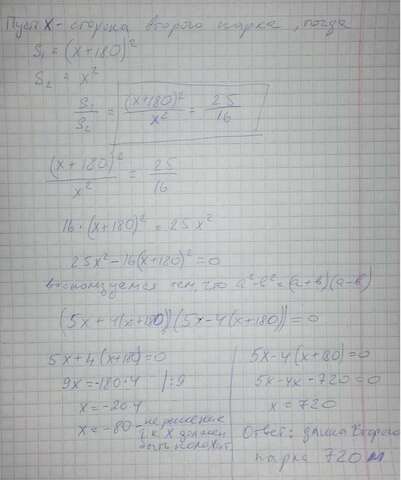 Пусть x - сторона второго парка, тогда
S₁ = (x+180)²
S₂ = x²
S₁/S₂ = (x+180)²/x² = 25/16
(x+180)²/x² = 25/16
16·(x+180)² = 25x²
25x²-16(x+180)²=0
воспользуемся тем, что a²-b²=(a+b)(a-b)
(5x+4(x+180))(5x-4(x+180))=0
5x+4(x+180)=0
9x=-180·4 |:9
x=-20·4
x=-80 - не решение
т.к x должен
быть полож
5x-4(x+180)=0
5x-4x-720=0
x=720
Ответ: длина второго
парка 720м